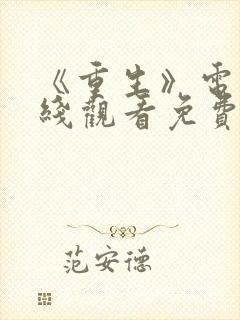 《重生》電
綫觀看免費
范安德